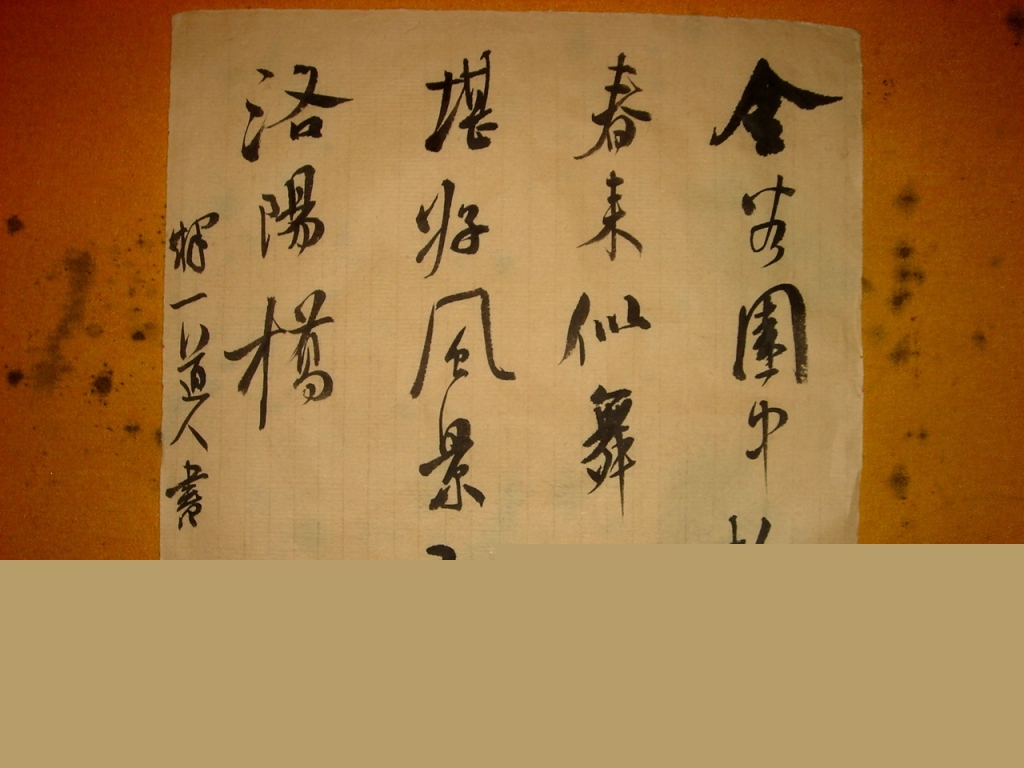 金谷園中
春来似舞
堪好風景
洛陽橋
一道人書